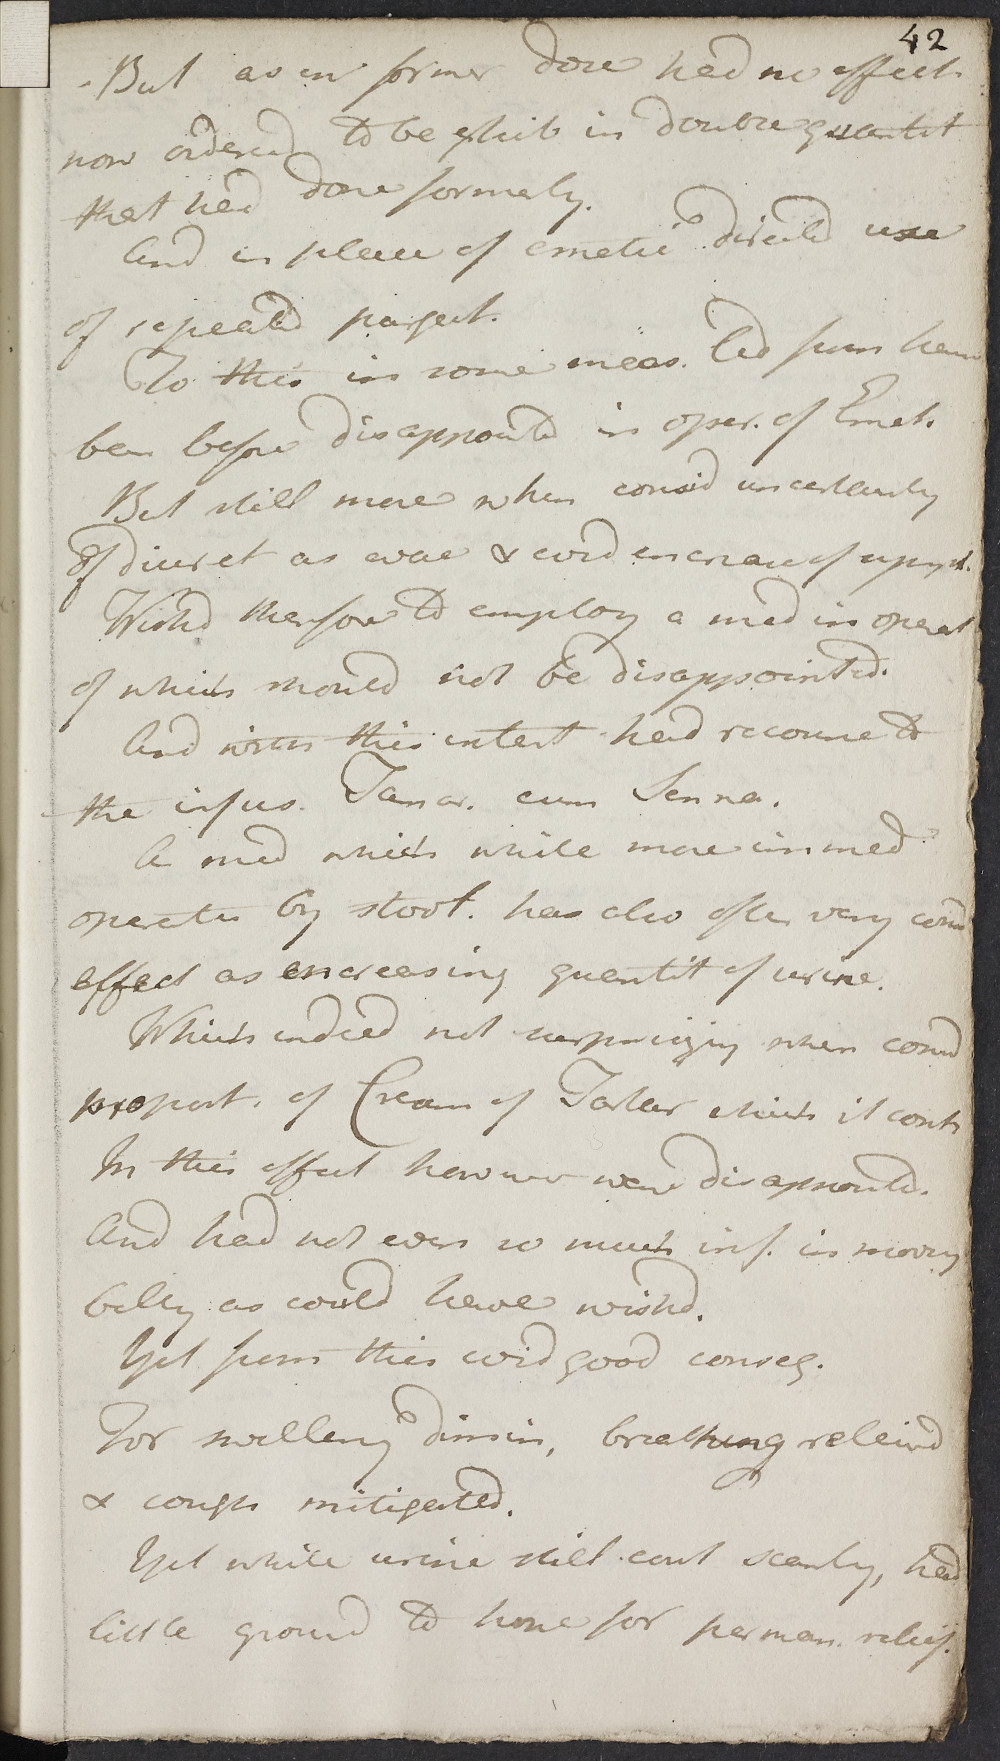 42
But as in former dose had no effect
now ordered to be exhib in double quantit
that had done formerly.
And in place of emetic directed use
of repeated purgat.
To this in some meas. led from havg
been before disappointd in oper. of Emet.
But still more when consid uncertainty
of diuret as evac & evid increase of sympt.
Wishd therefore to employ a med in operat
of which should not be disappointed.
And with this intent had recourse to
the infus. Tamar. cum Senna.
A med which while more immed
operates by stool. has also often very consid
effect as encreasing quantit of urine.
Which indeed not surprizing when consid
proport. of Cream of Tartar which it conts
In this effect however were disappointd.
And had not even so much inf. in moving
belly as could have wishd.
Yet from this evid good conseq.
For swelling dimin, breathing releivd
& cough mitigated.
Yet while urine still cont scanty, had
little ground to hope for perman. relief.